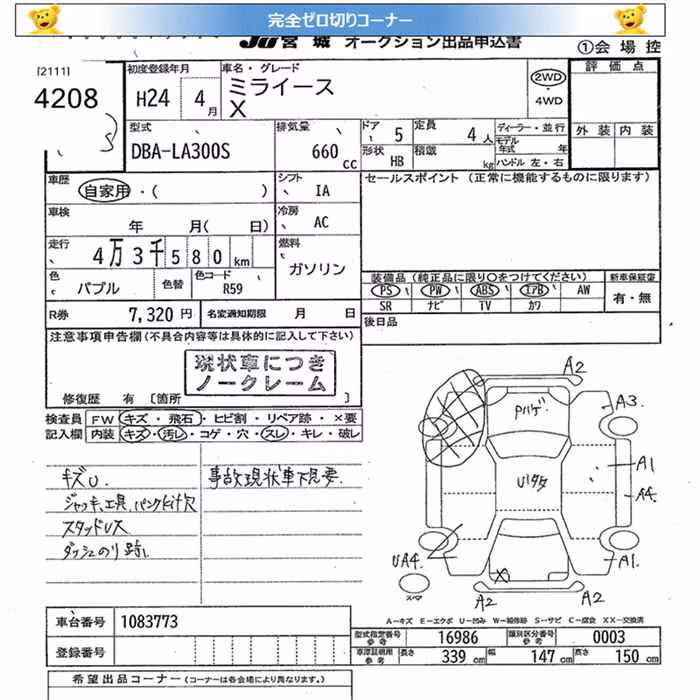 完全ゼロ切りコーナー
JU宮城 オークション出品申込書
①会場控
[2111]
4208
初度登録年月
H24 4月
車名・グレード
ミライース
X
2WD
4WD
評価点
外装 内装
型式
DBA-LA300S
排気量
660 cc
ドア 5
形状 HB
定員 4人
積載 kg
ディーラー・並行
モデル年式 年
ハンドル 左・右
車歴
自家用・( )
シフト
IA
セールスポイント (正常に機能するものに限ります)
車検
年 月( 日)
冷房
AC
走行
4万3千580km
燃料
ガソリン
色
パブル
色替
色コード
R59
装備品 (純正品に限り○をつけてください)
新車保証書
PS PW ABS エアB AW
SR ナビ TV カワ
有・無
R券
7,320円
名変通知期限 月 日
後日品
注意事項申告欄 (不具合内容等は具体的に記入して下さい)
現状車につき
ノークレーム
修復歴 有 [箇所
検査員 FW キズ・飛石・ヒビ割・リペア跡・×要
記入欄 内装 キズ・汚レ・コゲ・穴・スレ・キレ・破レ
キズU.
ジャッキ、工具、パンクkit欠
スタッドレス
ダッシュのり跡、
事故現状車下見要
A2
Pハゲ
A3
A1
Uハタ
A4
UA4
A1
スペア
A2 A2
A-キズ E-エクボ U-凹み W-補修跡 S-サビ C-腐食 XX-交換済
車台番号
1083773
型式指定番号 参考
16986
類別区分番号 参考
0003
登録番号
車庫証明用 参考
長さ 339cm 幅 147cm 高さ 150cm
希望出品コーナー (コーナーは各会場により異なります。)